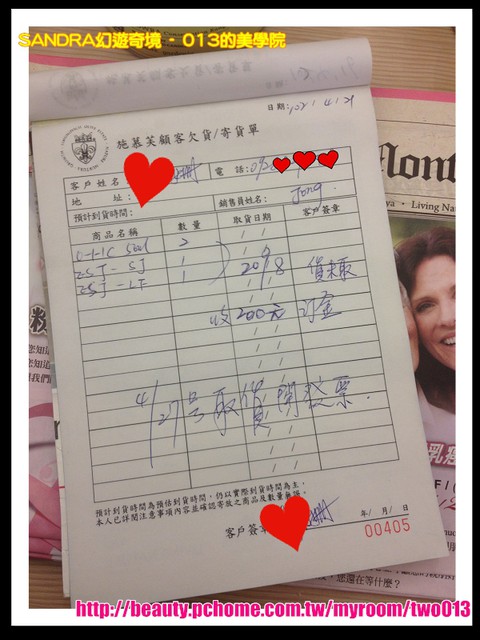 SANDRA幻遊奇境 - 013的美學院
日期:102/4/21
施慕芙顧客欠貨/寄貨單
客戶姓名
電話:
地 址:
銷售員姓名:
預計到貨時間:
商品名稱 數量 取貨日期 客戶簽章
2
ESJ - SJ 1 2098 貨未取
ESJ - LF 1
收200元 訂金
4/27号取貨開發票.
預計到貨時間為預估到貨時間，仍以實際到貨時間為主。
本人已詳閱注意事項內容並確認寄放之商品及數量無誤。
客戶簽章
年/ 月/ 日
00405
lont
ya • Living Na
您知道
乳癌
，您還在等什麼？
http://beauty.pchome.com.tw/myroom/two013